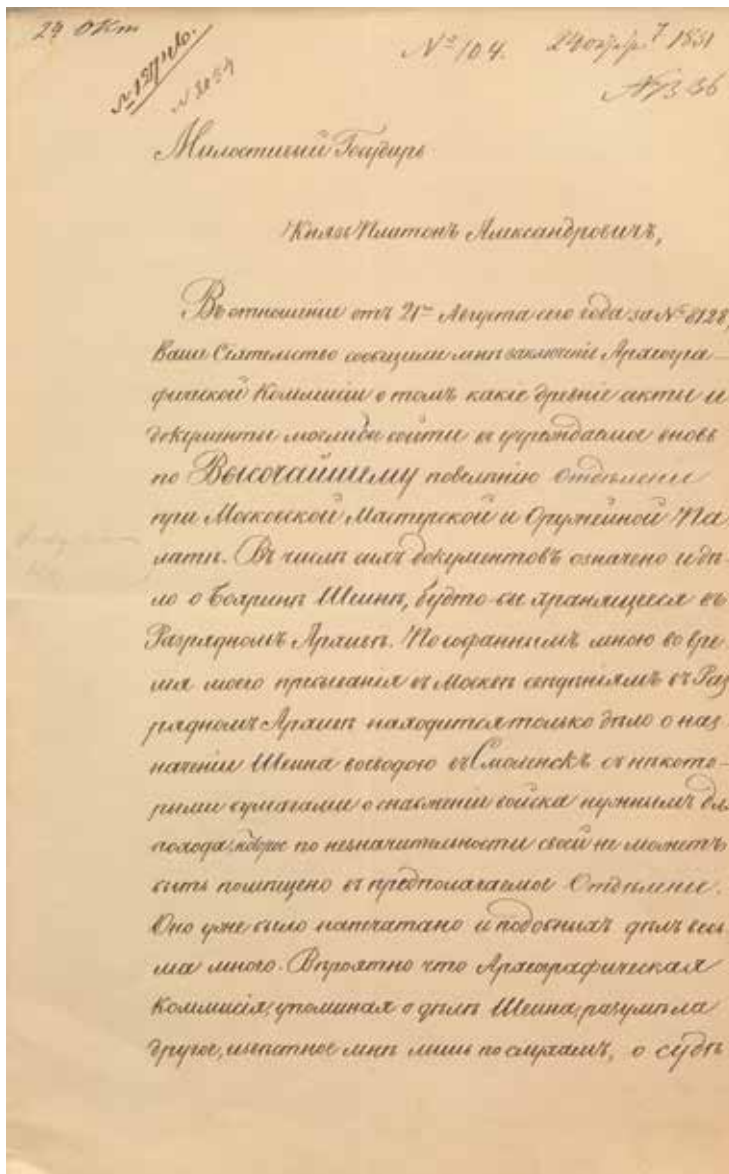 24 Окт
№ 3034
№ 104. 24 октбр 1851
Милостивый Государь
Князь Платонъ Александровичъ,
Въ отношеніи отъ 21го Августа сего года за № 8128,
Ваше Сіятельство сообщили мнѣ заключеніе Археогра-
фической Коммиссіи о томъ какіе древніе акты и
документы моглибы войти въ учреждаемое вновь
по Высочайшему повелѣнію Отдѣленіе
при Московской Мастерской и Оружейной Па
латѣ. Въ числѣ сихъ документовъ означено и дѣ-
ло о Бояринѣ Шеинѣ, будто-бы хранящееся въ
Разрядномъ Архивѣ. По собраннымъ мною во вре
мя моего пребыванія въ Москвѣ свѣдѣніямъ въ Раз
рядномъ Архивѣ находится только дѣло о наз
наченіи Шеина воеводою въ Смоленскъ съ нѣкото-
рыми бумагами о снабженіи войска нужнымъ для
похода, которое по незначительности своей не можетъ
быть помѣщено въ предполагаемое Отдѣленіе.
Оно уже было напечатано и подобныхъ дѣлъ весь
ма много. Вѣроятно что Археографическая
Коммисія, упоминая о дѣлѣ Шеина, разумѣла
другое, извѣстное мнѣ лишь по слухамъ, о судѣ